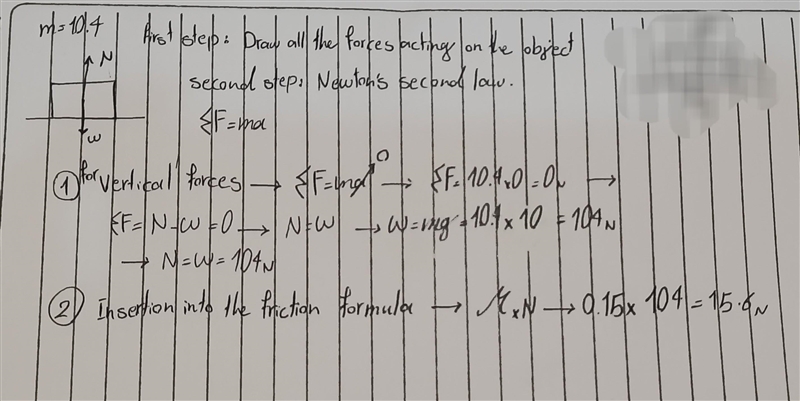 m=10.4
First step: Draw all the forces acting on the object
N
second step: Newton's second law.
W
ΣF=ma
① for vertical forces → ΣF=ma 0 → ΣF=10.4×0=0N →
ΣF=N-W=0 → N=W → W=mg=10.4×10=104N
→ N=W=104N
② Insertion into the friction formula → μ×N → 0.15×104=15.6N